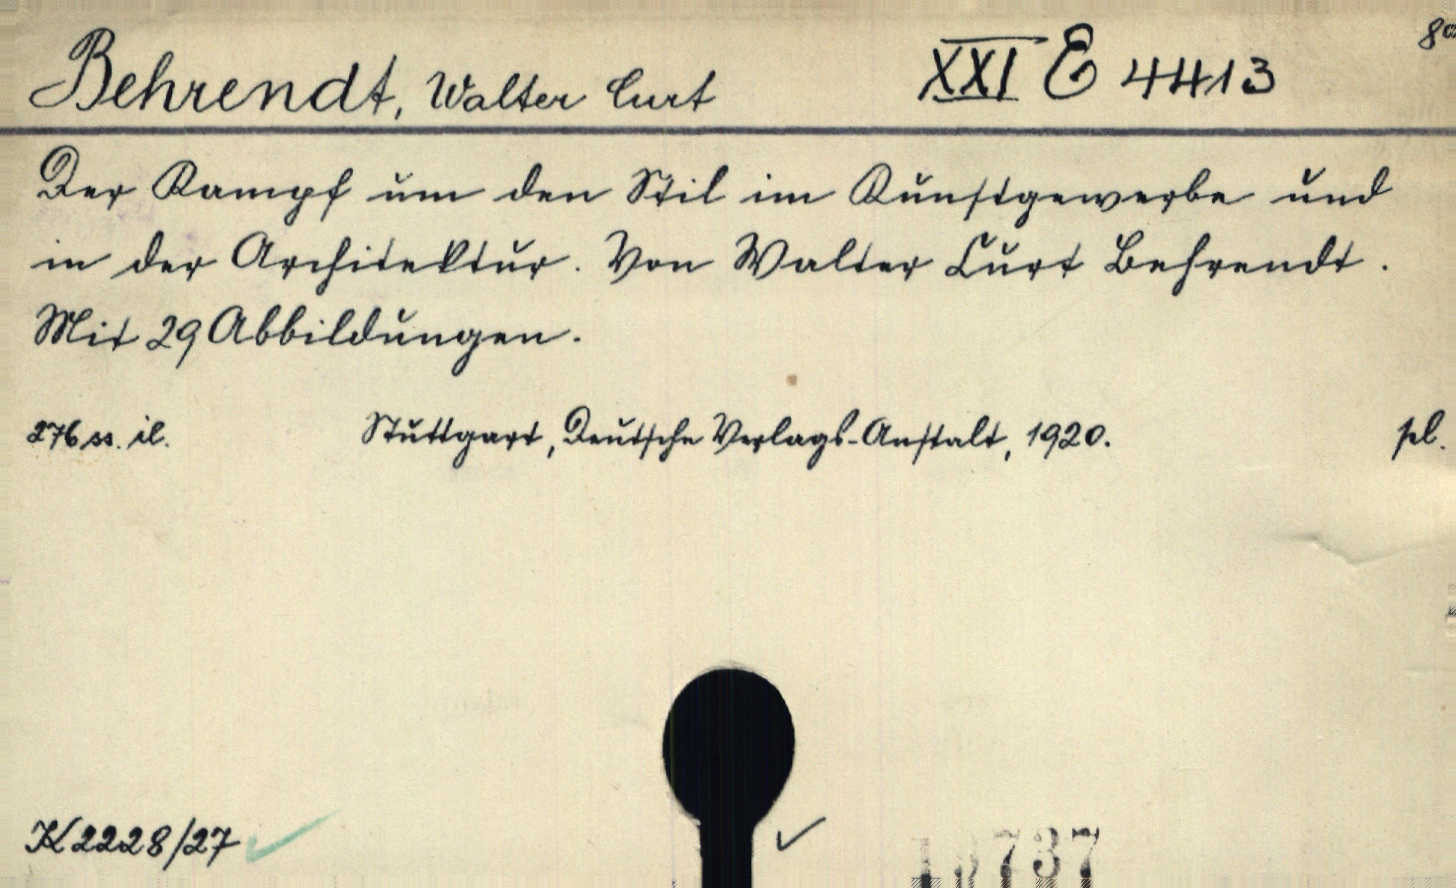 Behrendt, Walter Curt XXI E 4413 8°
Der Kampf um den Stil im Kunstgewerbe und
in der Architektur. Von Walter Curt Behrendt.
Mit 29 Abbildungen.
276 ss. il. Stuttgart, Deutsche Verlags-Anstalt, 1920. pl.
K 2228/27